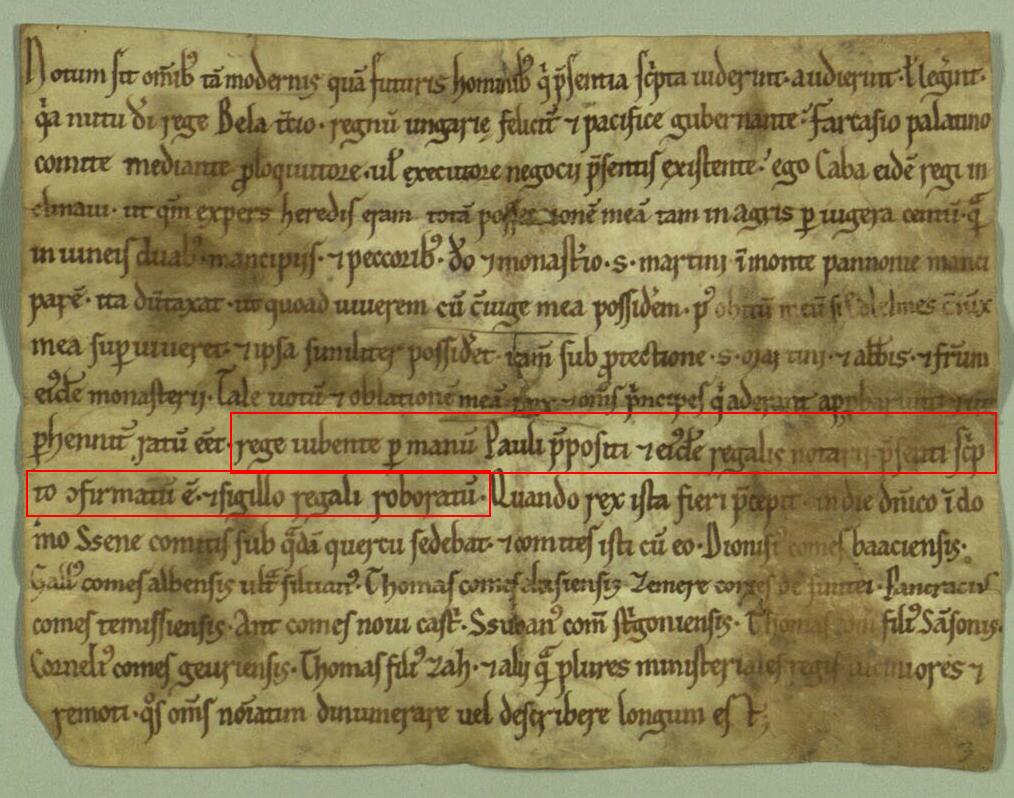 Notum sit om̄ib; tā modernis quā futuris hominib; q̇ p̄sentia sc̄pta uiderint · audierint · ł leġint ·
q̇a nutu dī rege Bela t̄cio · regnū ungarię felicit͛ ⁊ pacifice gubernante · Farcasio palatino
comite mediante ꝓloquutore · ul̄ executore negocii p̄sentis existente · ego Caba eidē regi in
clinaui · ut qm̄ expers heredis eram totā possessionē meā tam in agris ꝑ iugera centū · q̄
in uineis duab; · mancipiis · ⁊ peccorib; · dō ⁊ monast̄io · s · martini ī monte pannonie manci
parē · ita dūtaxat · ut quoad uiuerem cū c̄iuge mea possidēm · pꝰ obitū meū si c̄iux
mea sup uiueret · ⁊ ipsa similiter possidet · iam sub ꝓtectione · s · martini · ⁊ abb̄is · ⁊ fr̄um
eiꝰdē monasterii · Tale uotū ⁊ oblationē meā rex ⁊ om̄s p̄ncipes q̇ aderant app̱barunt
ꝑhennit͛ ratū eēt · rege iubente ꝑ manū Pauli p̄positi ⁊ eiꝰdē regalis notarii · p̄senti sc̄p
to ↄfirmatū ē · ⁊ sigillo regali roboratū · Quando rex ista fieri p̄cepit · in die dn̄ico ī do
mo Ssene comitis sub q̄dā quercu sedebat · ⁊ comites isti cū eo · Dionisiꝰ comes baaciensis ·
Gallꝰ comes albensis ult͛ siluanꝰ · Thomas comes Zemere comes de Pancraciꝰ
comes temissiensis · Ant comes noui cast͛ · Ssubanꝰ com̄ st͛goniensis · Thomas com̄ filiꝰ Sāsonis ·
Corneliꝰ comes geuriensis · Thomas filiꝰ Zah · ⁊ alii q̄ plures ministeriales regis uiciniores ⁊
remoti · q̊s om̄s nōiatim dinumerare uel describere longum est ;
3